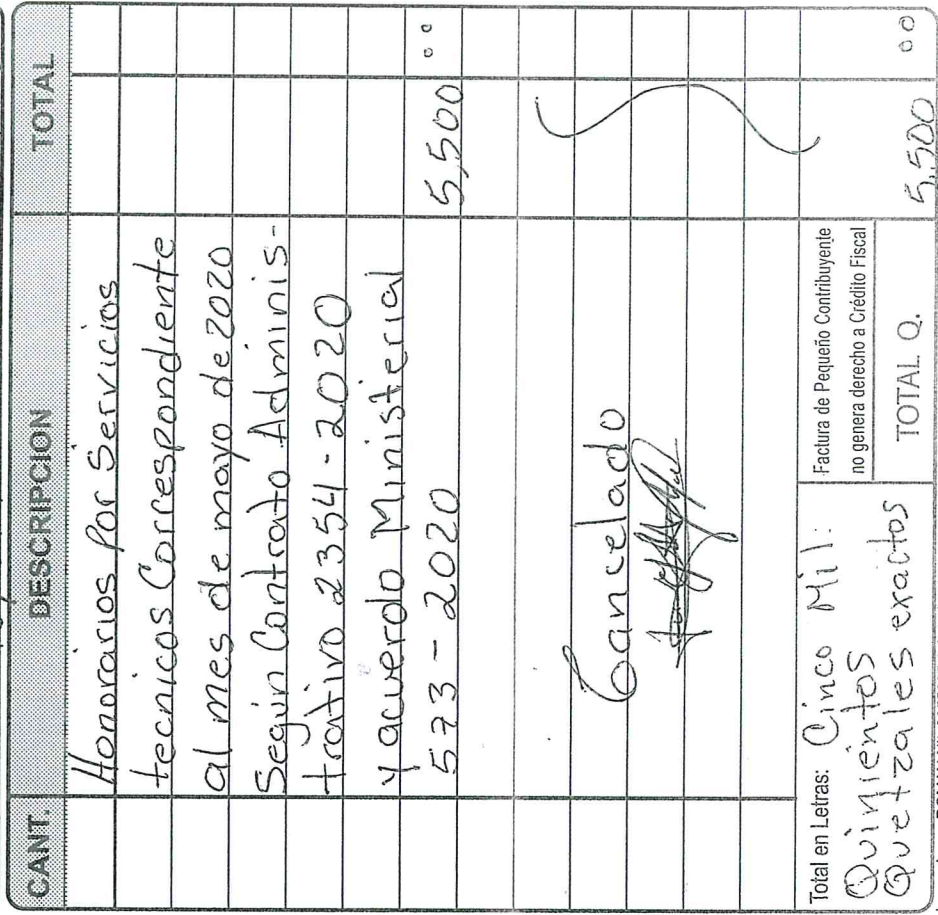 CANT. DESCRIPCION TOTAL
Honorarios Por Servicios
tecnicos Correspondiente
al mes de mayo de 2020
Según Contrato Adminis-
trativo 2354-2020
y acuerdo Ministerial
573-2020 5,500 00
Cancelado
Total en Letras: Cinco Mil:
Quinientos
Quetzales exactos
Factura de Pequeño Contribuyente
no genera derecho a Crédito Fiscal
TOTAL Q. 5,500 00